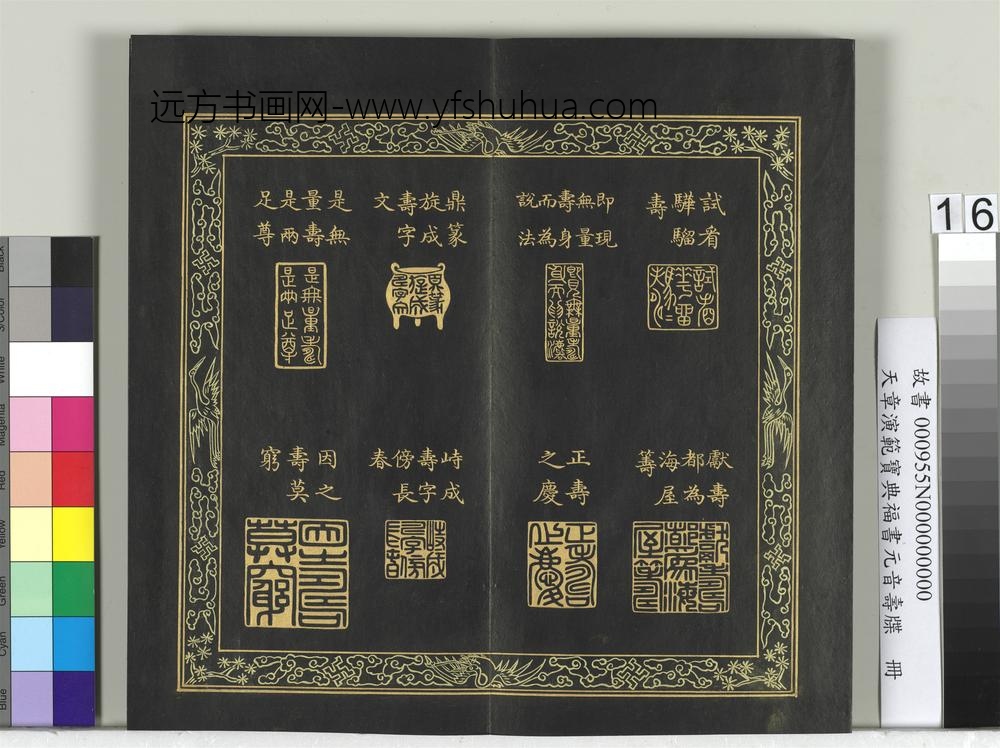 远方书画网-www.yfshuhua.com
試看
驊騮
壽
即現
無量
壽身
而為
說法
鼎篆
旋成
壽字
文
是無
量壽
是兩
足尊
獻壽
都為
海屋
籌
正壽
之慶
峙成
壽字
傍長
春
因之
壽莫
窮
故書 000955N000000000
天章演範寶典福書元音壽牒 冊
16
Black
3/Color
White
Magenta
Red
Yellow
Green
Cyan
Blue